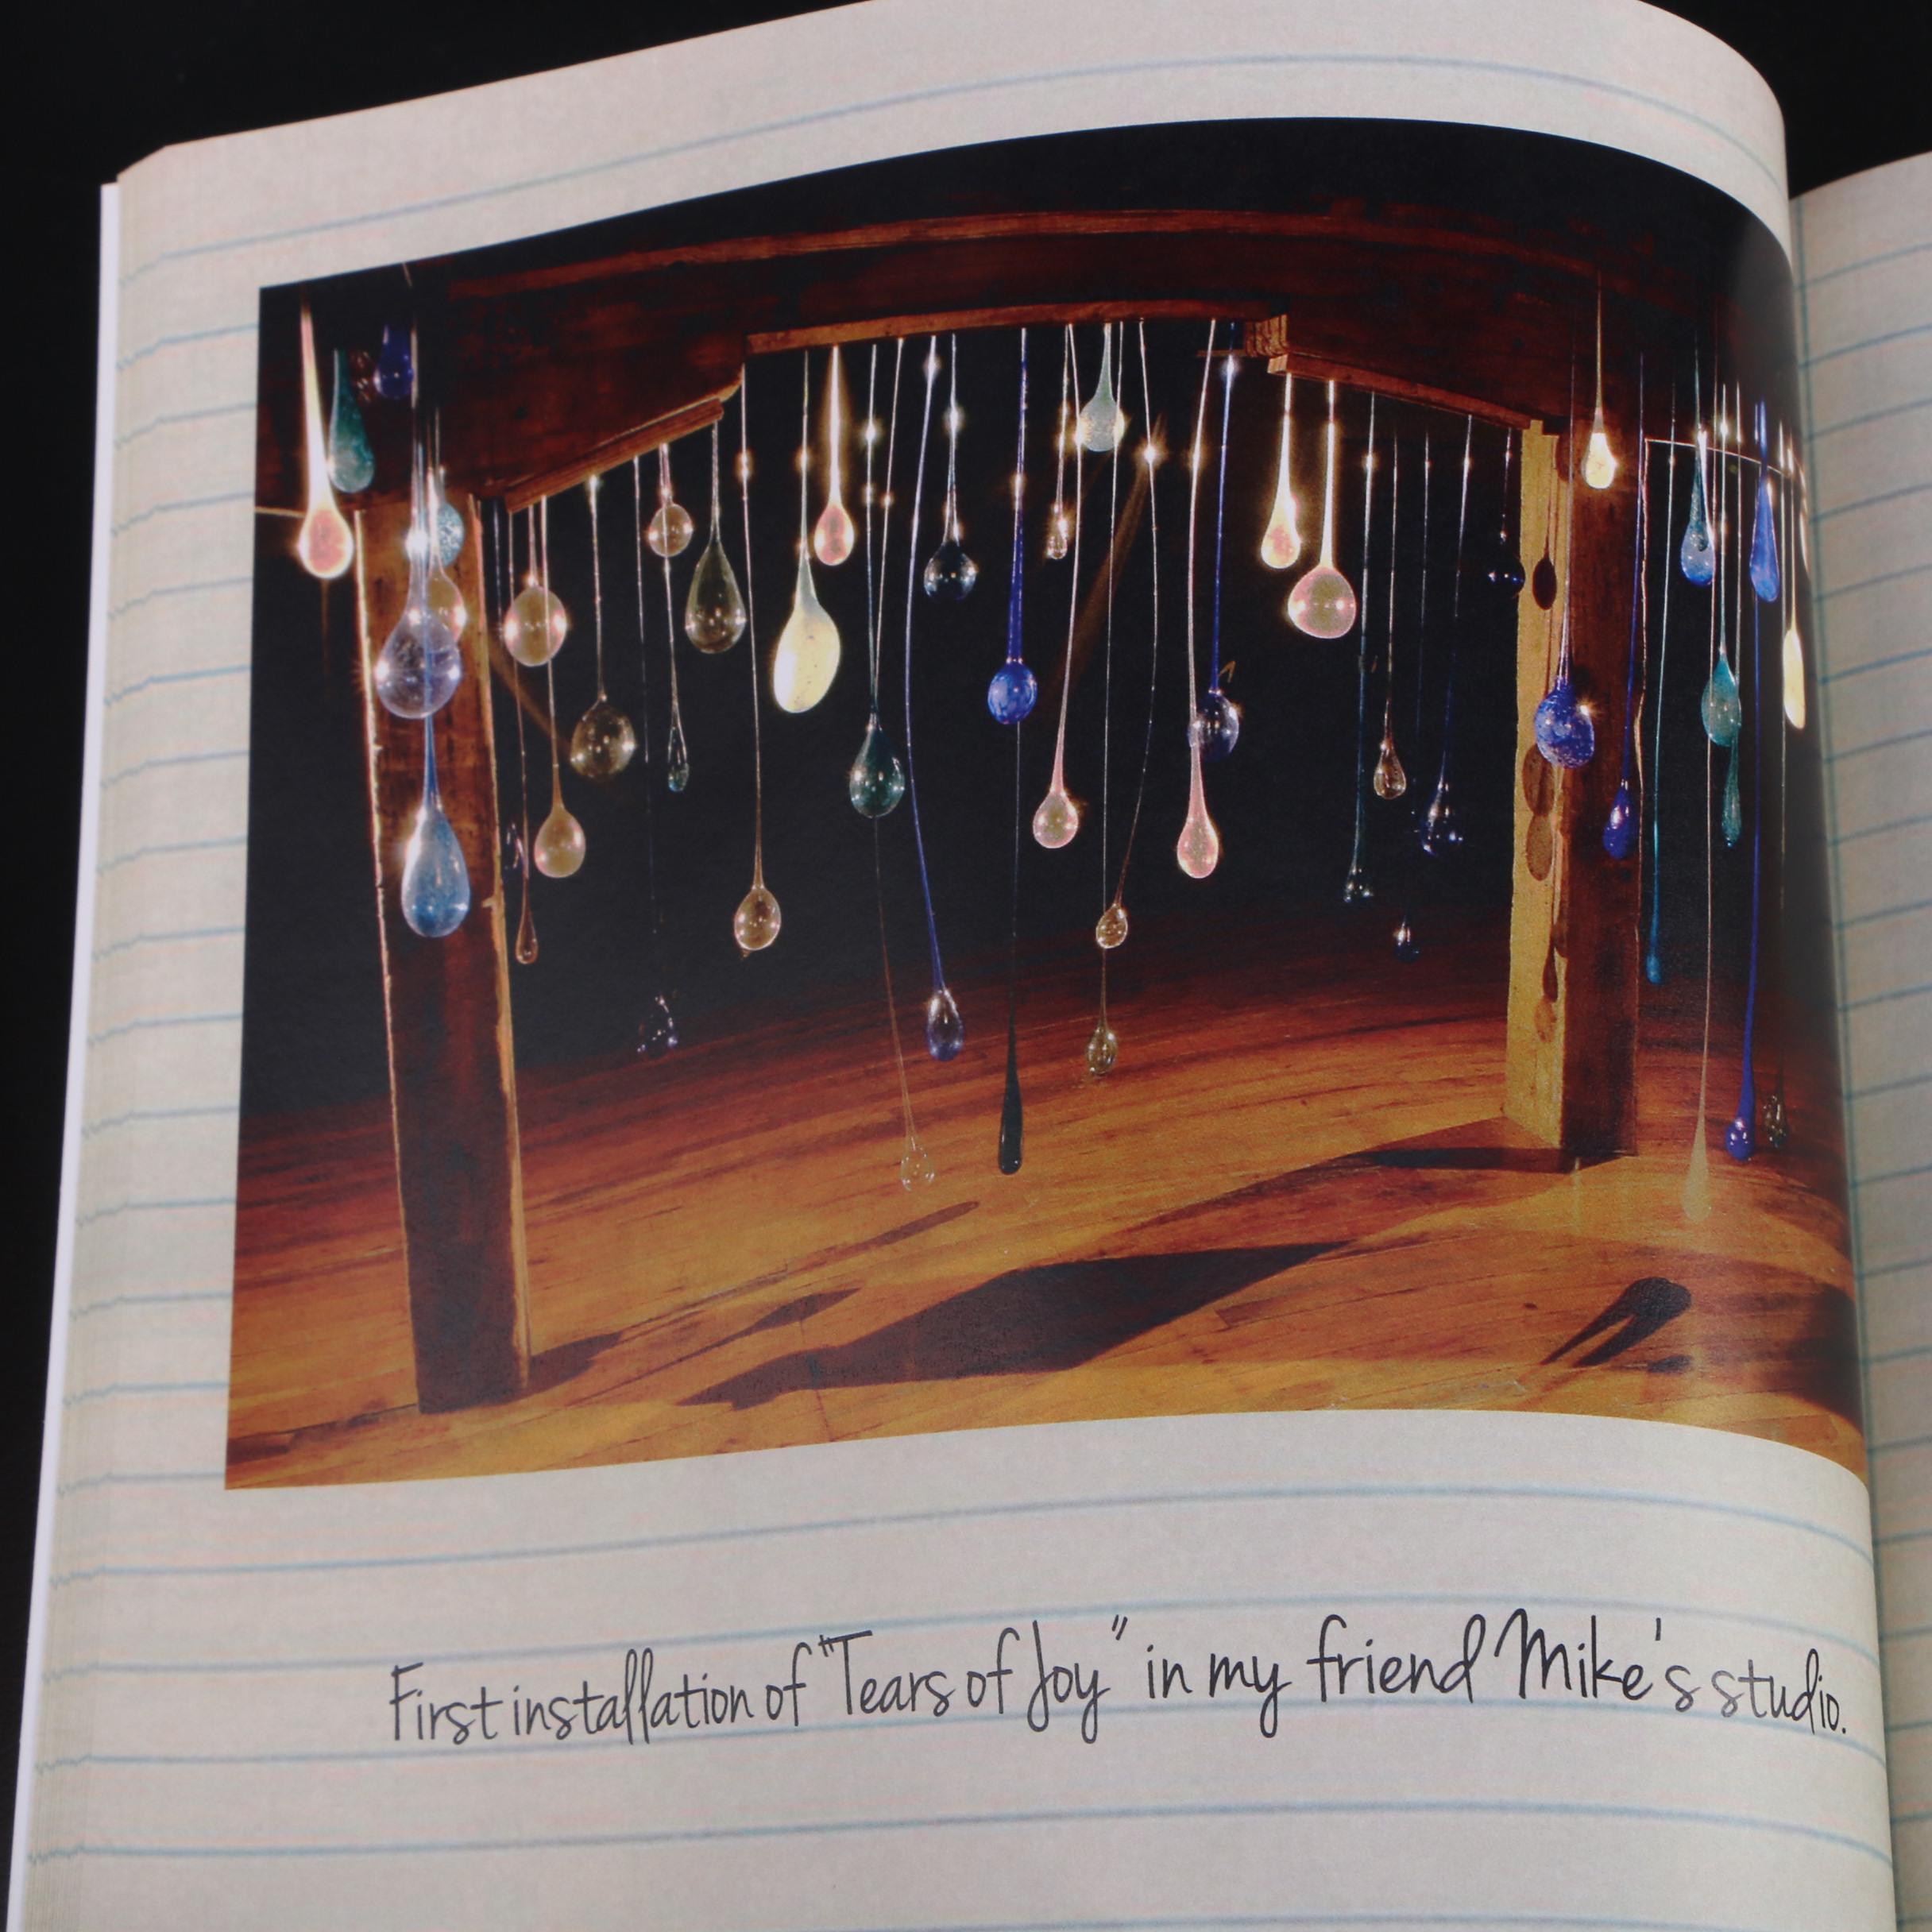 First installation of "Tears of Joy" in my friend Mike's studio.